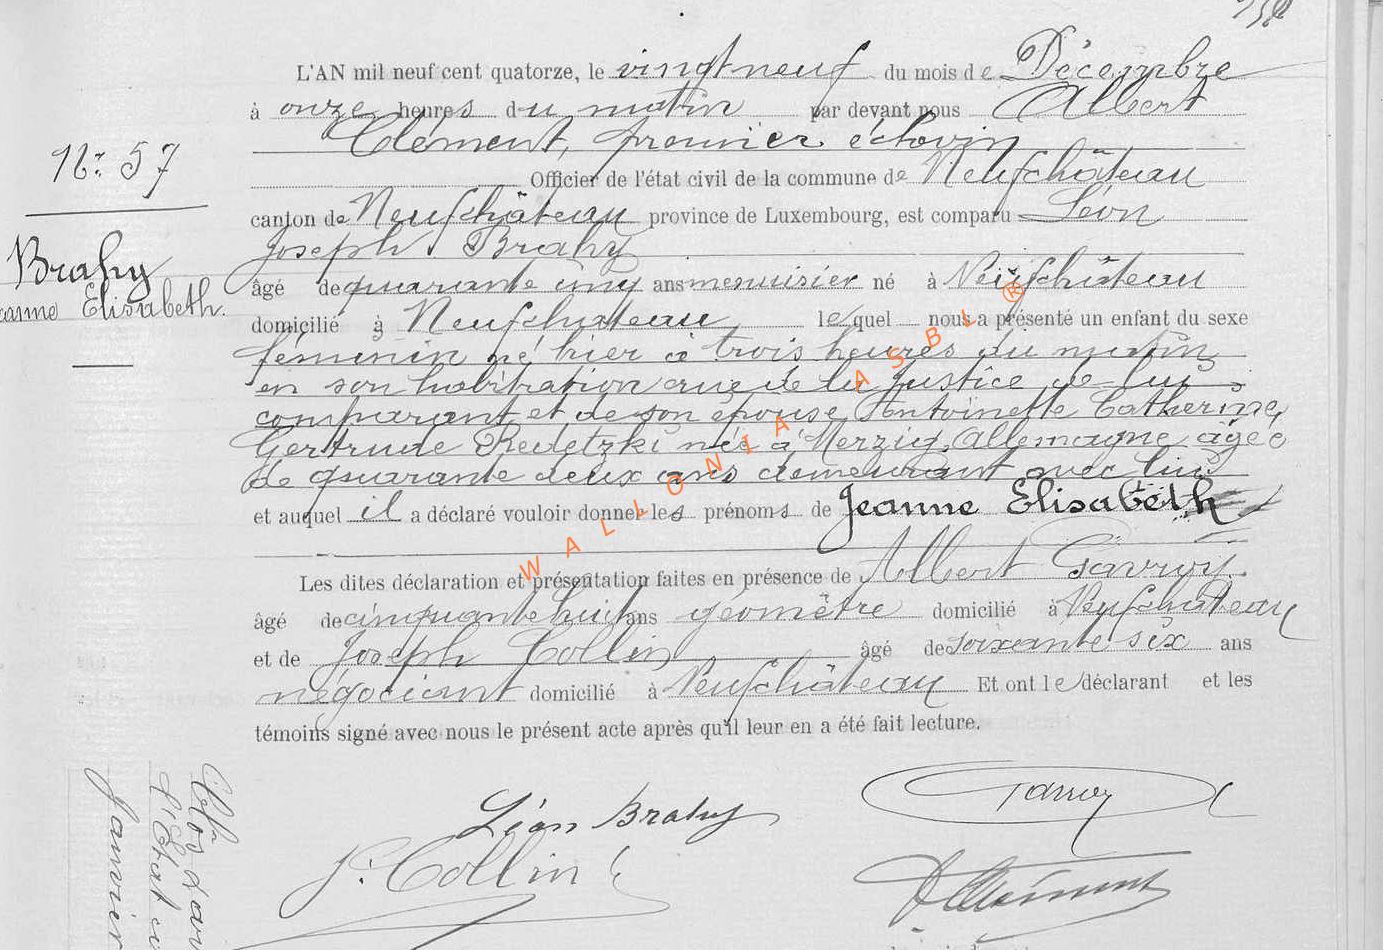 L'AN mil neuf cent quatorze, le vingt neuf du mois de Décembre
à onze heures du matin par devant nous Albert
Clément, premier échevin
N° 57
Officier de l'état civil de la commune de Neufchâteau
canton de Neufchâteau province de Luxembourg, est comparu Léon
Joseph Brahy
Brahy
Jeanne Elisabeth.
âgé de quarante cinq ans menuisier né à Neufchâteau
domicilié à Neufchateau lequel nous a présenté un enfant du sexe
féminin né hier à trois heures du matin
en son habitation rue de la Justice de lui
comparant et de son épouse Antoinette Catherine
Gertrude Redetzki née à Merzig, Allemagne âgée
de quarante deux ans demeurant avec lui
et auquel il a déclaré vouloir donner les prénoms de Jeanne Elisabeth
WALLONIA ASBL ®
Les dites déclaration et présentation faites en présence de Albert Gavroy
âgé de cinquante huit ans géomètre domicilié à Neufchateau
et de Joseph Collin âgé de soixante six ans
négociant domicilié à Neufchâteau Et ont le déclarant et les
témoins signé avec nous le présent acte après qu'il leur en a été fait lecture.
Léon Brahy
Gavroy
J. Collin
A Clément
l'Etat ci
Janvier